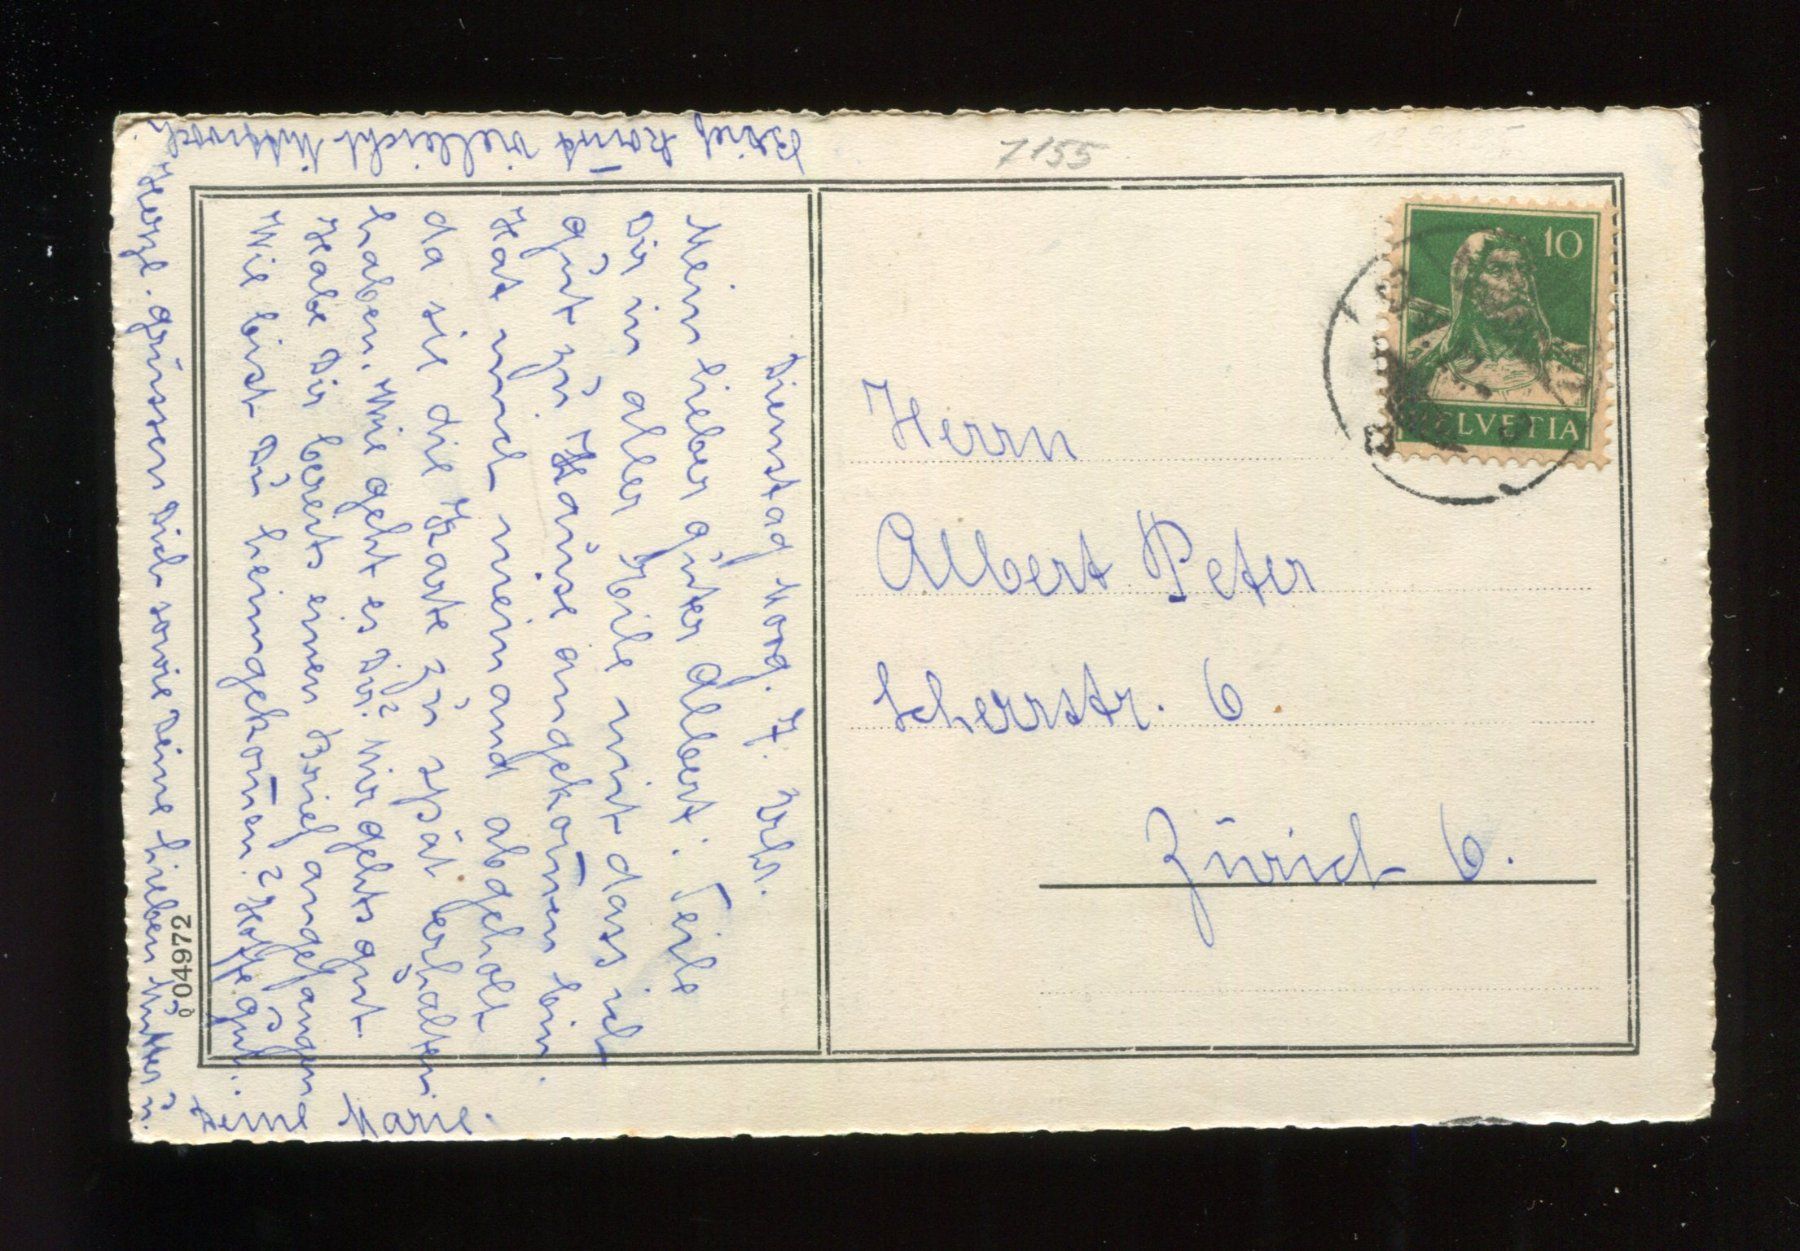 7155
10
HELVETIA
Herrn
Albert Peter
Scherrstr. 6
Zürich 6.
Dienstag Morg. 7. Uhr.
Mein lieber guter Albert! Teile
Dir in aller Eile mit dass ich
gut zu Hause angekom̄en bin.
Hat mich niemand abgeholt
da sie die Karte zu spät erhalten
haben. Wie geht es Dir? Mir gehts gut
Habe Dir bereits einen Brief angefangen
Wie bist Du heimgekom̄en? Hoffe gut.
Herzl. grüssen Dich sowie Deine lieben Mutter u.
Deine Marie.
Brief kom̄t vielleicht Mittwoch.
04972